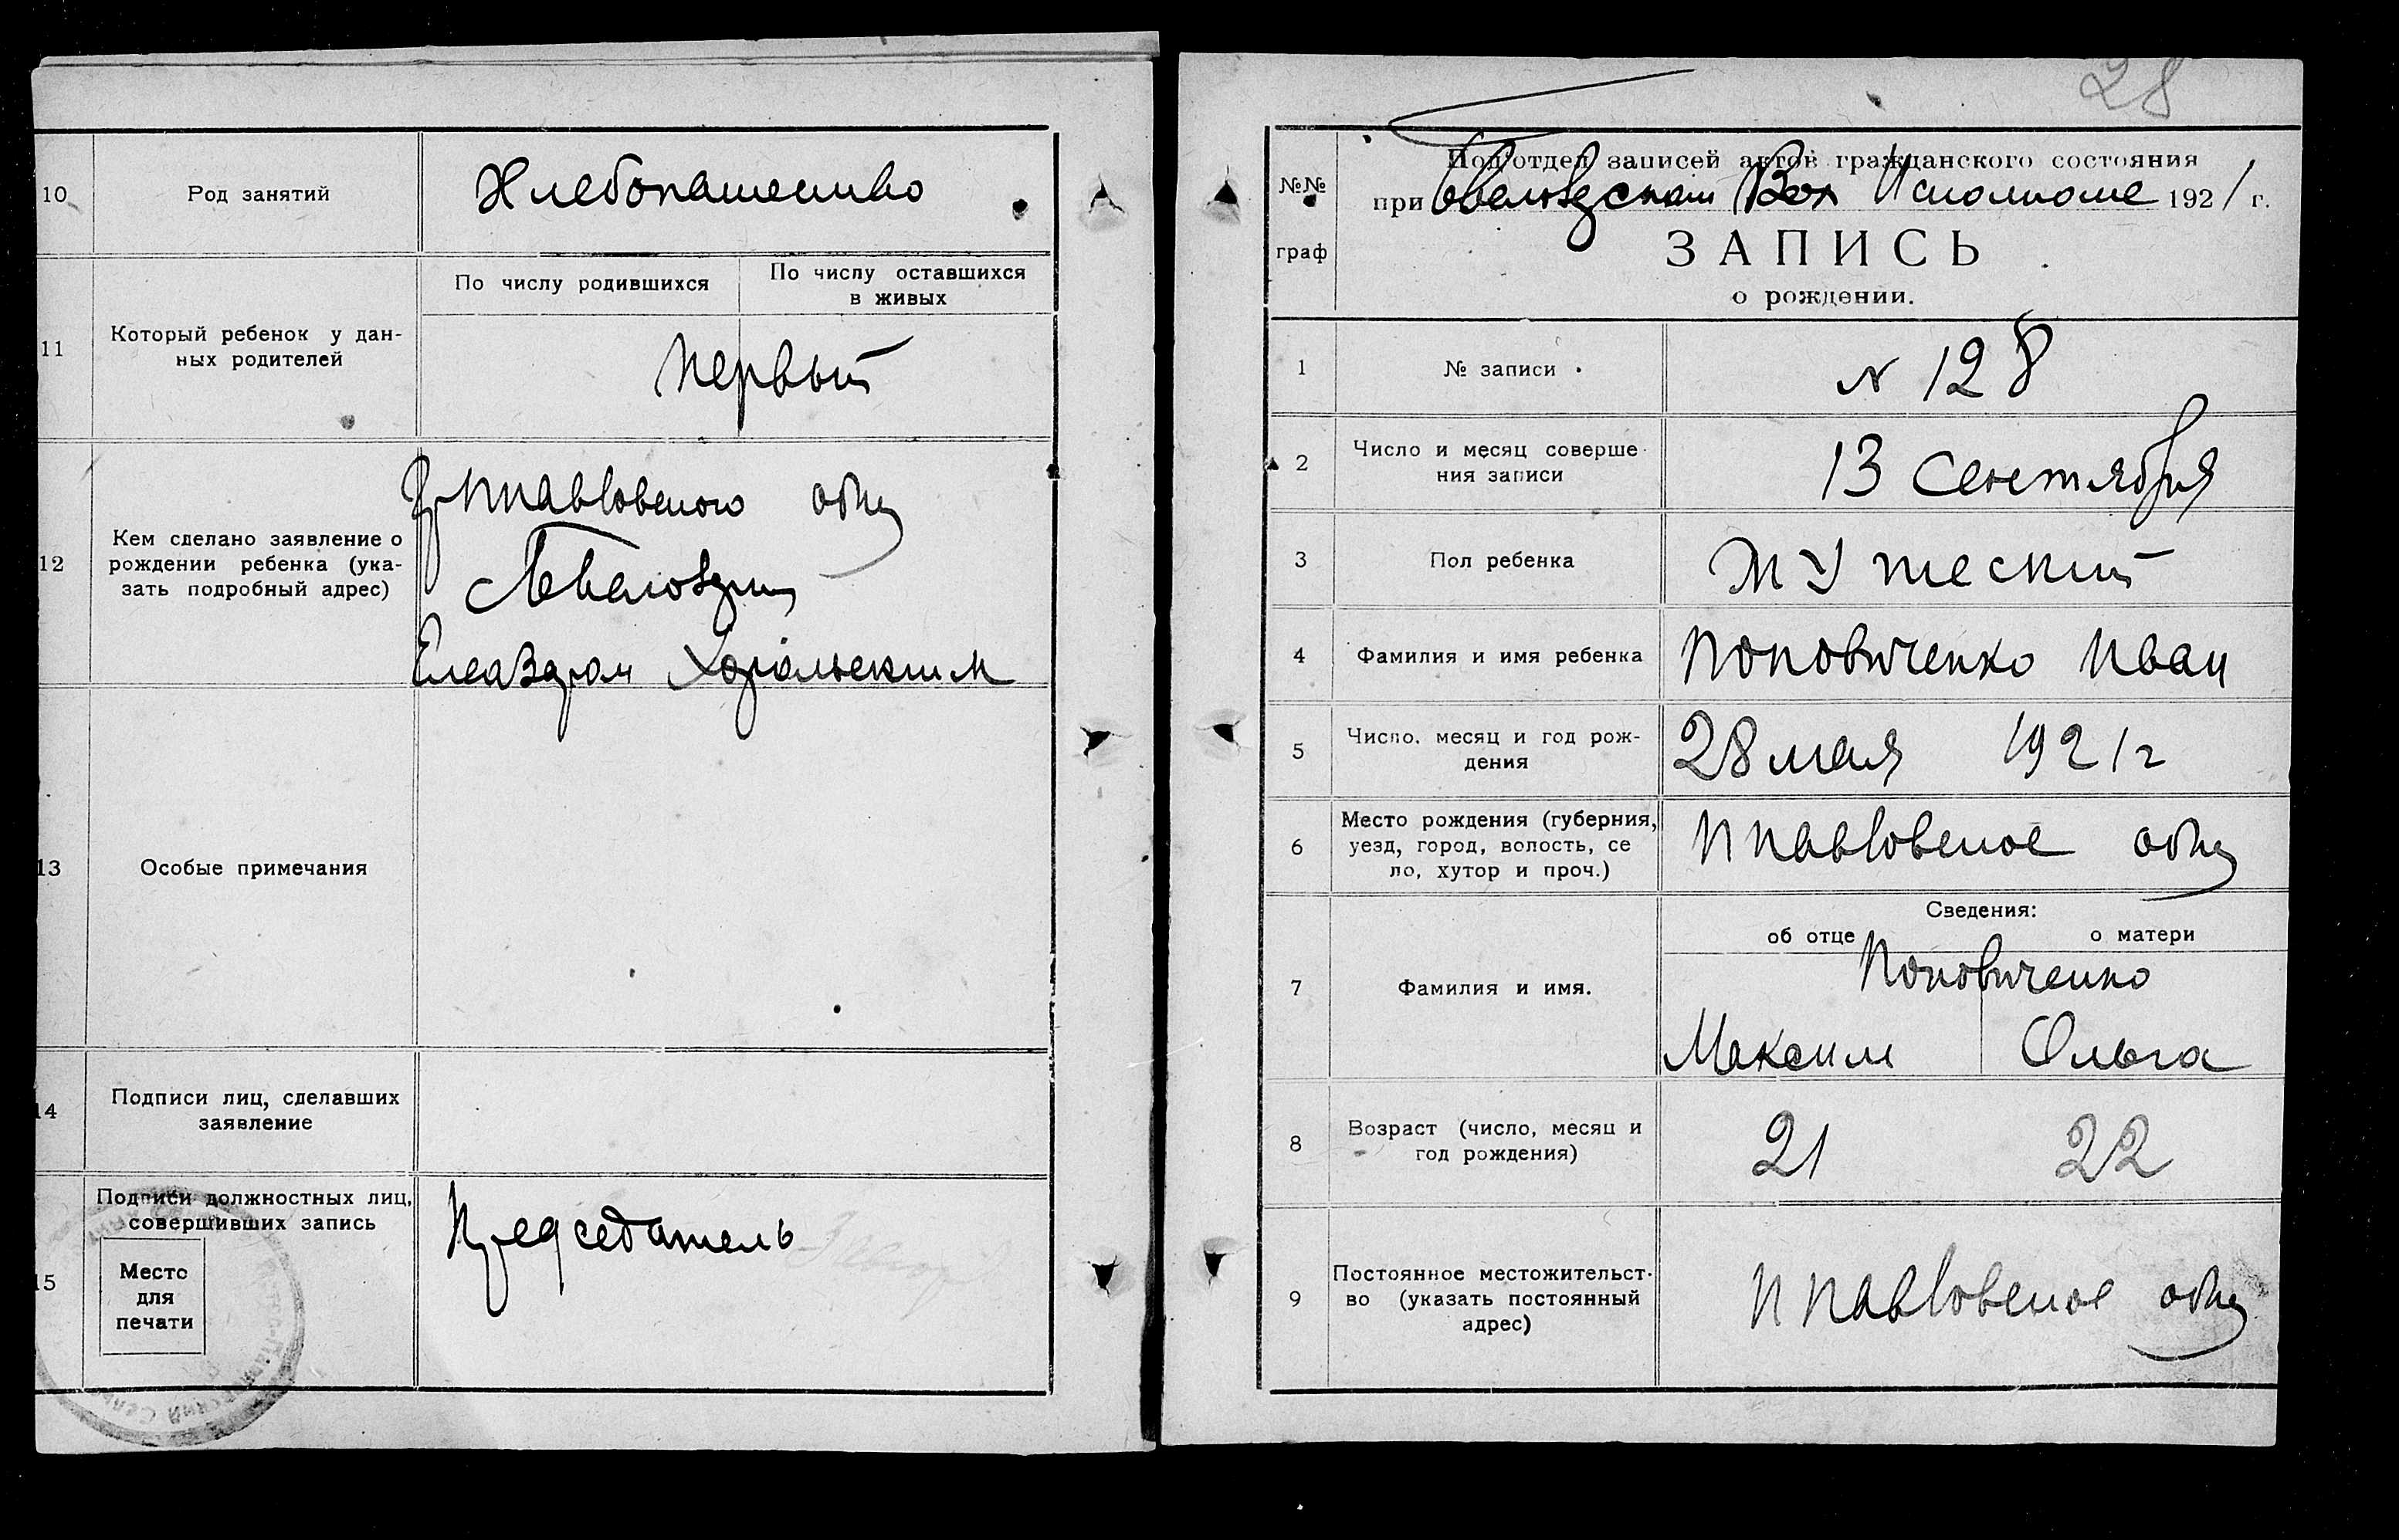 10
Род занятий
Хлебопашество
11
Который ребенок у дан-
ных родителей
По числу родившихся
По числу оставшихся
в живых
Первый
12
Кем сделано заявление о
рождении ребенка (ука-
зать подробный адрес)
общ
Елеазаром Хорольским
13
Особые примечания
14
Подписи лиц, сделавших
заявление
15
Подписи должностных лиц,
совершивших запись
Место
для
печати
Председатель
28
№№
граф
Подотдел записей актов гражданского состояния
при Вол Исполкоме 1921 г.
ЗАПИСЬ
о рождении.
1
№ записи
N 128
2
Число и месяц соверше-
ния записи
13 Сентября
3
Пол ребенка
Мужеский
4
Фамилия и имя ребенка
Поповиченко Иван
5
Число, месяц и год рож-
дения
28 мая 1921 г
6
Место рождения (губерния,
уезд, город, волость, се
ло, хутор и проч.)
П Павловское общ
7
Фамилия и имя.
Сведения:
об отце
о матери
Поповиченко
Максим
Ольга
8
Возраст (число, месяц и
год рождения)
21
22
9
Постоянное местожительст-
во (указать постоянный
адрес)
П Павловское общ